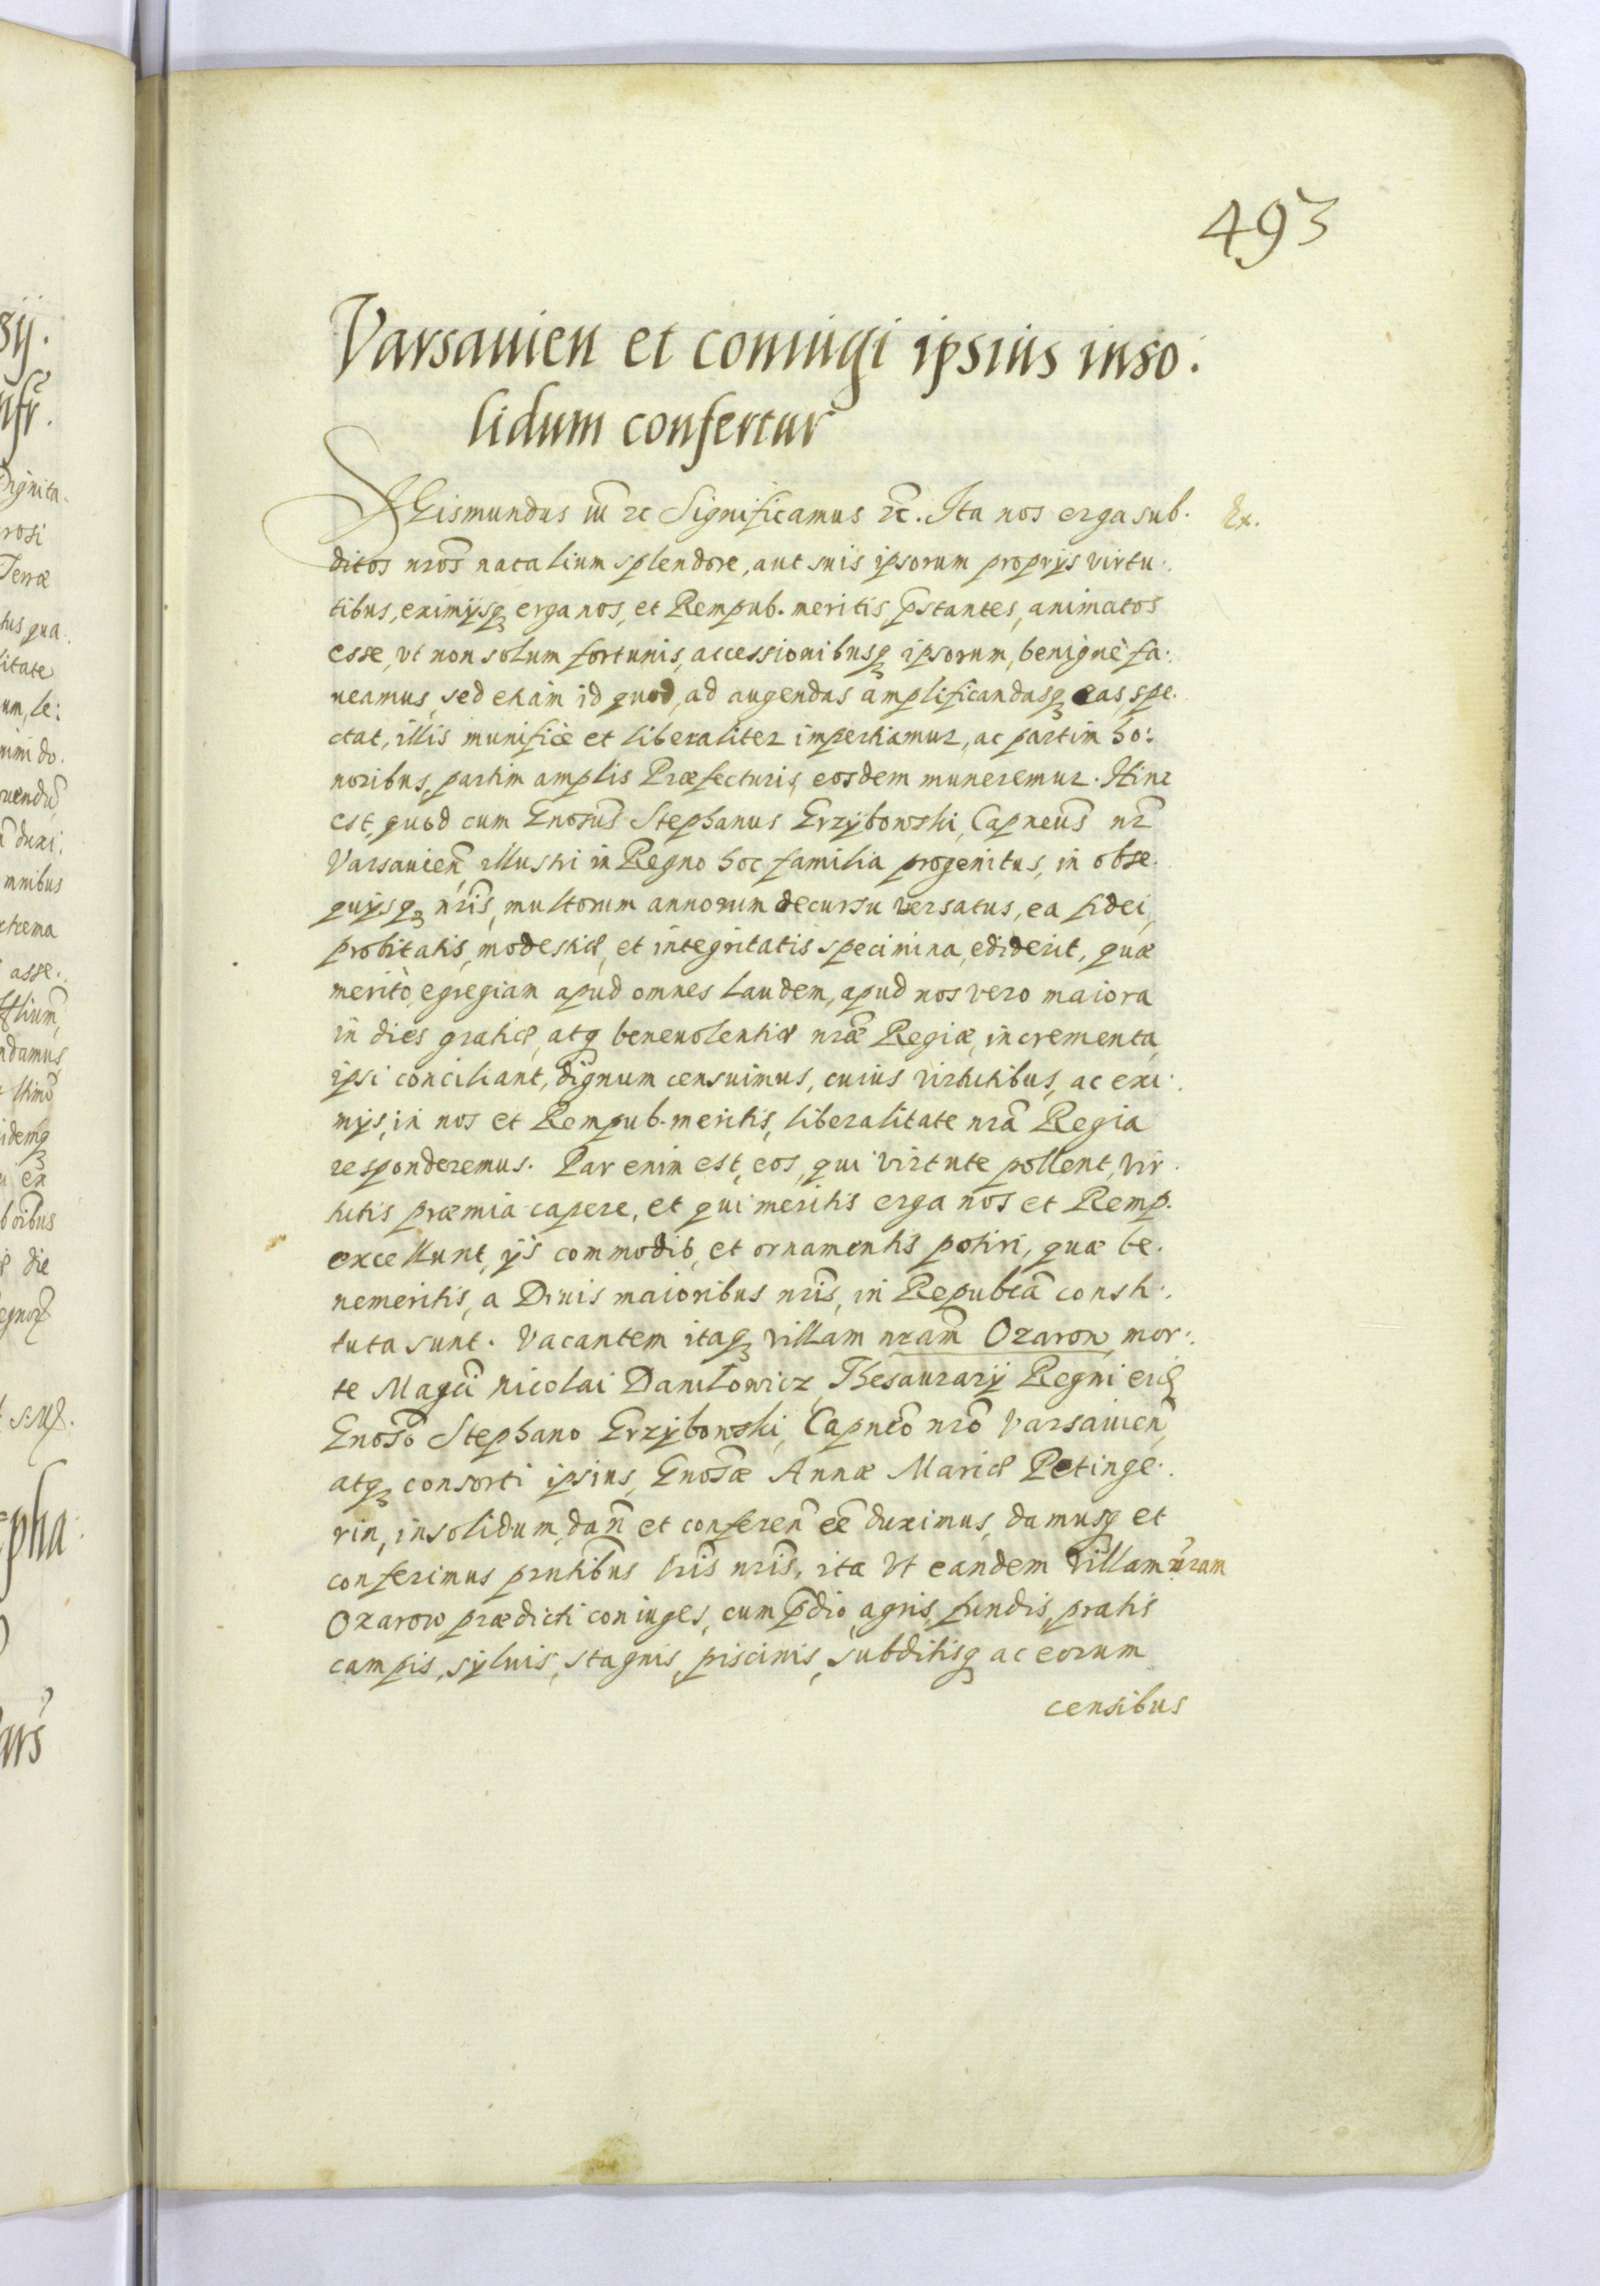 493
Varsauien et coniugi ipsius inso.
lidum confertur
SGismundus iii ꝛc Significamus ꝛc. Ita nos erga sub.
Ex.
ditos nros̃ natalium splendore, aut suis ipsorum proprijs virtu.
tibus, eximijsq₃ erga nos, et Rempub. meritis p̃stantes, animatos
esse, vt non solum fortunis, accessionibusq₃ ipsorum, benignè fa.
ueamus, sed etiam id quod, ad augendas amplificandasq₃ eas, spe.
ctat, illis munificè et liberaliter impertiamur, ac partim ho.
noribus, partim amplis Præfecturis, eosdem muneremur. Hinc
est, quod cum Gnosus̃ Stephanus Grzybowski, Capneus̃ nr̃
Varsauien̄, illustri in Regno hoc familia progenitus, in obse.
quijsq₃ nris̃, multorum annorum decursu versatus, ea fidei,
probitatis, modestiæ, et integritatis specimina, ediderit, quæ
meritò, egregiam apud omnes laudem, apud nos vero maiora
in dies gratiæ, atq benevolentiæ nræ̃ Regiæ, incrementa,
ipsi conciliant, dignum censuimus, cuius virtutibus, ac exi.
mijs, in nos et Rempub. meritis, liberalitate nrã Regia
responderemus. Par enim est, eos, qui virtute pollent, vir.
tutis præmia capere, et qui meritis erga nos et Remp.
excellunt, ijs commodis, et ornamentis potiri, quæ be.
nemeritis, a Diuis maioribus nris̃, in Republcã consti.
tuta sunt. Vacantem itaq₃ villam nram̃ Ozarow, mor.
te Magci̇̃ Nicolai Danilowicz, Thesaurarij Regni eid̃
Gnosõ Stephano Grzybowski, Capneõ nrõ Varsauien̄,
atq₃ consorti ipsius, Gnosæ̃ Annæ Mariæ Petinge.
rin, insolidum, dañ et conferen̄ eẽ duximus, damusq₃ et
conferimus pntibus̃ lris̃ nris̃, ita vt eandem villam nram
Ozarow prædicti coniuges, cum p̃dio, agris, fundis, pratis
campis, syluis, stagnis, piscinis, subditisq₃ ac eorum
censibus